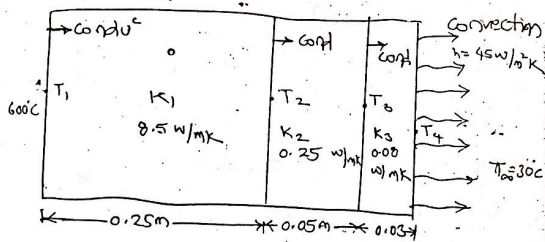 Conduc
Cond
Cond
Convection
h = 45 W/m²K
T1
600°C
K1
8.5 W/mK
T2
K2
0.25 W/mK
T3
K3
0.08
W/mK
T4
T∞ = 30°C
0.25m
0.05m
0.03